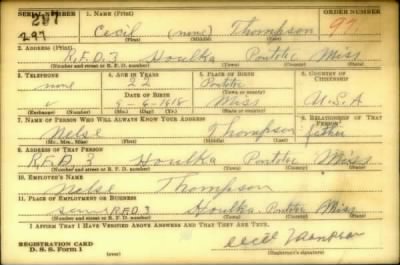 SERIAL NUMBER 1. NAME (Print) ORDER NUMBER
297 Cecil (none) Thompson 97
(First) (Middle) (Last)
2. ADDRESS (Print)
R.F.D. 3 Houlka Pontotoc Miss
(Number and street or R. F. D. number) (Town) (County) (State)
3. TELEPHONE 4. AGE IN YEARS 5. PLACE OF BIRTH 6. COUNTRY OF CITIZENSHIP
none 22 Pontotoc
DATE OF BIRTH (Town or county)
8-6-1918 Miss U.S.A
(Exchange) (Number) (Mo.) (Day) (Yr.) (State or country)
7. NAME OF PERSON WHO WILL ALWAYS KNOW YOUR ADDRESS 8. RELATIONSHIP OF THAT PERSON
Nelse Thompson father
(Mr., Mrs., Miss) (First) (Middle) (Last)
9. ADDRESS OF THAT PERSON
R.F.D. 3 Houlka Pontotoc Miss
(Number and street or R. F. D. number) (Town) (County) (State)
10. EMPLOYER'S NAME
Nelse Thompson
11. PLACE OF EMPLOYMENT OR BUSINESS
R.F.D. 3 Houlka Pontotoc Miss
(Number and street or R. F. D. number) (Town) (County) (State)
I AFFIRM THAT I HAVE VERIFIED ABOVE ANSWERS AND THAT THEY ARE TRUE.
REGISTRATION CARD Cecil Thompson
D. S. S. Form 1 (Registrant's signature)